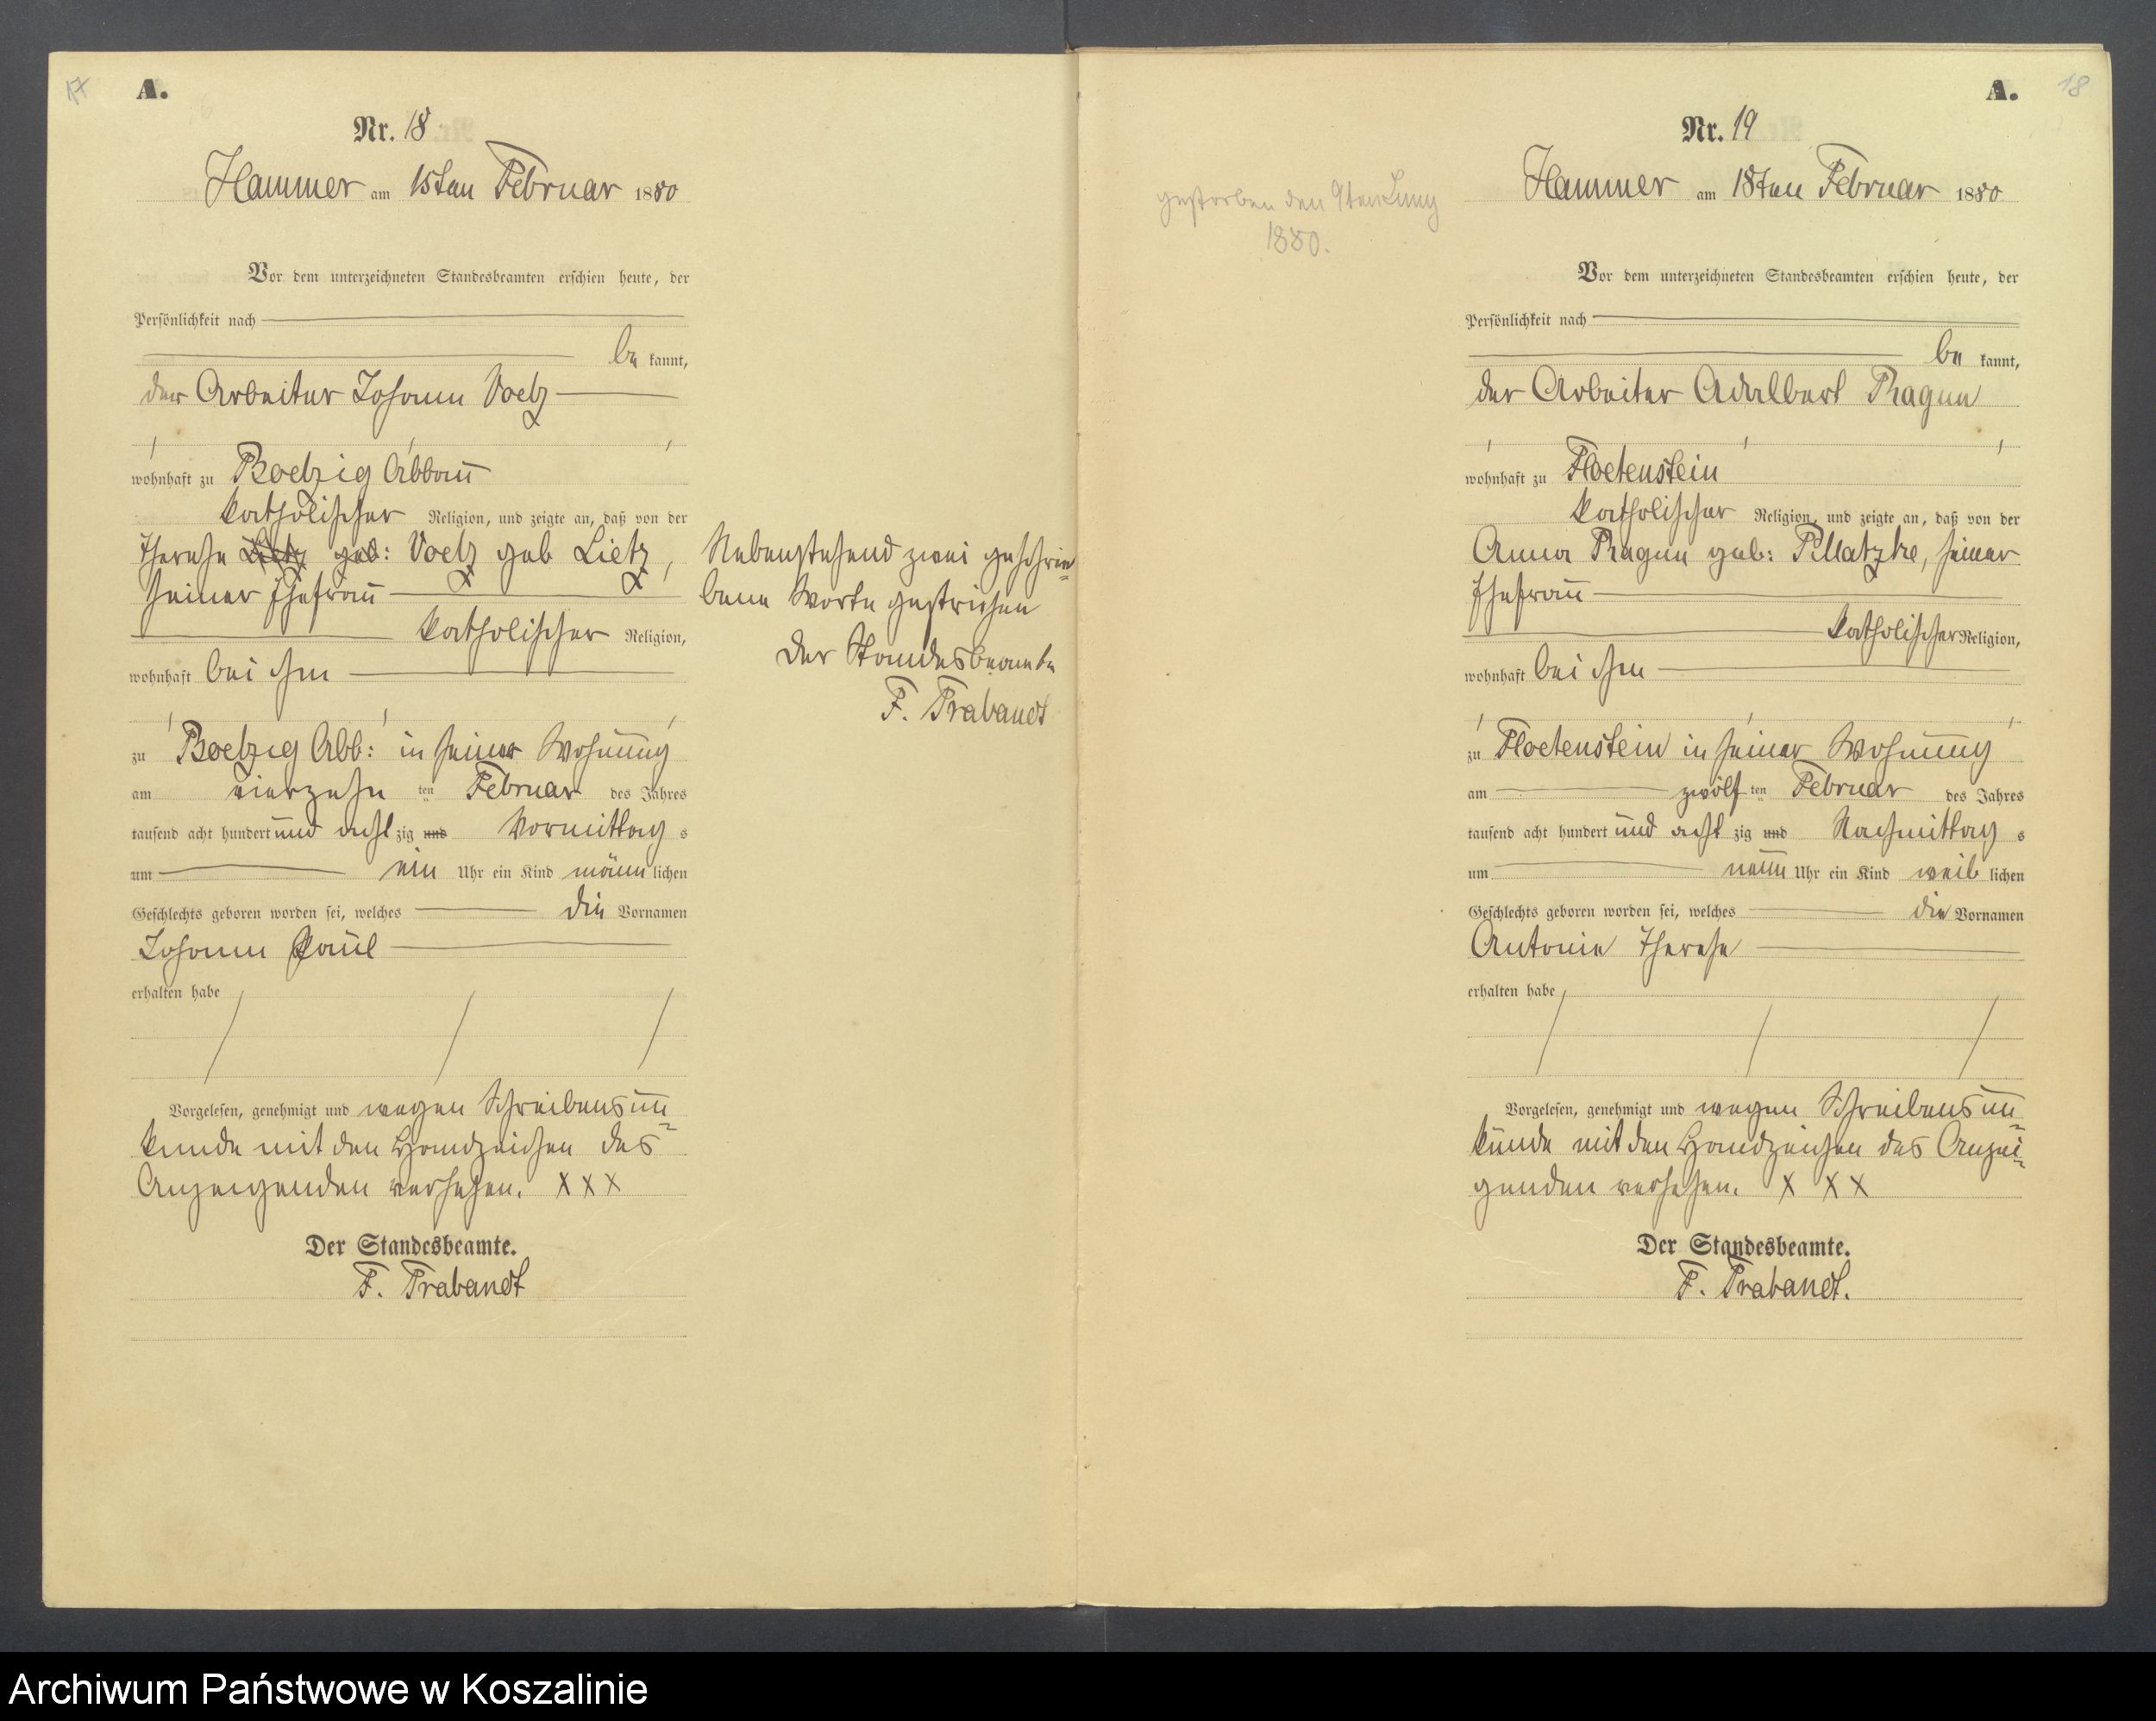 17
A.
Nr. 18
Hammer am 15ten Februar 1880
Vor dem unterzeichneten Standesbeamten erschien heute, der
Persönlichkeit nach
be kannt,
der Arbeiter Johann Voelz
wohnhaft zu Boelzig Abbau
katholischer Religion, und zeigte an, daß von der
Therese Lietz geb: Voelz geb Lietz,
seiner Ehefrau
katholischer Religion,
wohnhaft bei ihm
zu Boelzig Abb: in seiner Wohnung
am vierzehn ten Februar des Jahres
tausend acht hundert und acht zig und Vormittag s
um ein Uhr ein Kind männ lichen
Geschlechts geboren worden sei, welches die Vornamen
Johann Paul
erhalten habe
Vorgelesen, genehmigt und wegen Schreibensun=
kunde mit den Handzeichen des
Anzeigenden versehen. XXX
Der Standesbeamte.
F. Trabandt
Nebenstehend zwei geschrie=
bene Worte gestrichen
Der Standesbeamte
F. Trabandt
A.
18
Nr. 19
Hammer am 18ten Februar 1880
gestorben den 9ten Juny
1880.
Vor dem unterzeichneten Standesbeamten erschien heute, der
Persönlichkeit nach
be kannt,
der Arbeiter Adalbert Ragun
wohnhaft zu Floetenstein
katholischer Religion, und zeigte an, daß von der
Anna Ragun geb: Pllatzke, seiner
Ehefrau
katholischer Religion,
wohnhaft bei ihm
zu Floetenstein in seiner Wohnung
am zwölf ten Februar des Jahres
tausend acht hundert und acht zig und Nachmittag s
um neun Uhr ein Kind weib lichen
Geschlechts geboren worden sei, welches die Vornamen
Antonie Therese
erhalten habe
Vorgelesen, genehmigt und wegen Schreibensun=
kunde mit den Handzeichen des Anzei=
genden versehen. X X X
Der Standesbeamte.
F. Trabandt.
Archiwum Państwowe w Koszalinie